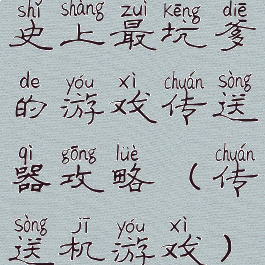 shǐ shàng zuì kēng diē
史上最坑爹
de yóu xì chuán sòng
的游戏传送
qì gōng lüè chuán
器攻略（传
sòng jī yóu xì
送机游戏）